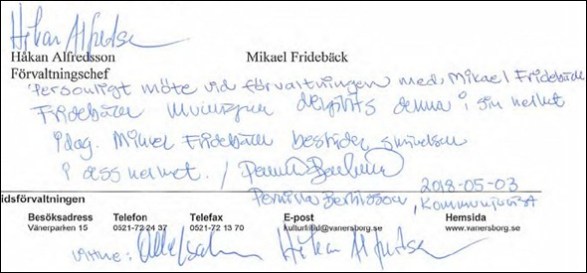 Håkan Alfredsson
Håkan Alfredsson Mikael Fridebäck
Förvaltningschef
Personligt möte vid förvaltningen med Mikael Fridebäck
Fridebäck delgivits denna i sin helhet
idag. Mikael Fridebäck bestrider
i dess helhet. /
2018-05-03
Pernilla , Kommunjurist
idsförvaltningen
Besöksadress Telefon Telefax E-post Hemsida
Vänerparken 15 0521-72 24 37 0521-72 13 70 kulturfritid@vanersborg.se www.vanersborg.se
Vittne: Håkan Alfredsson